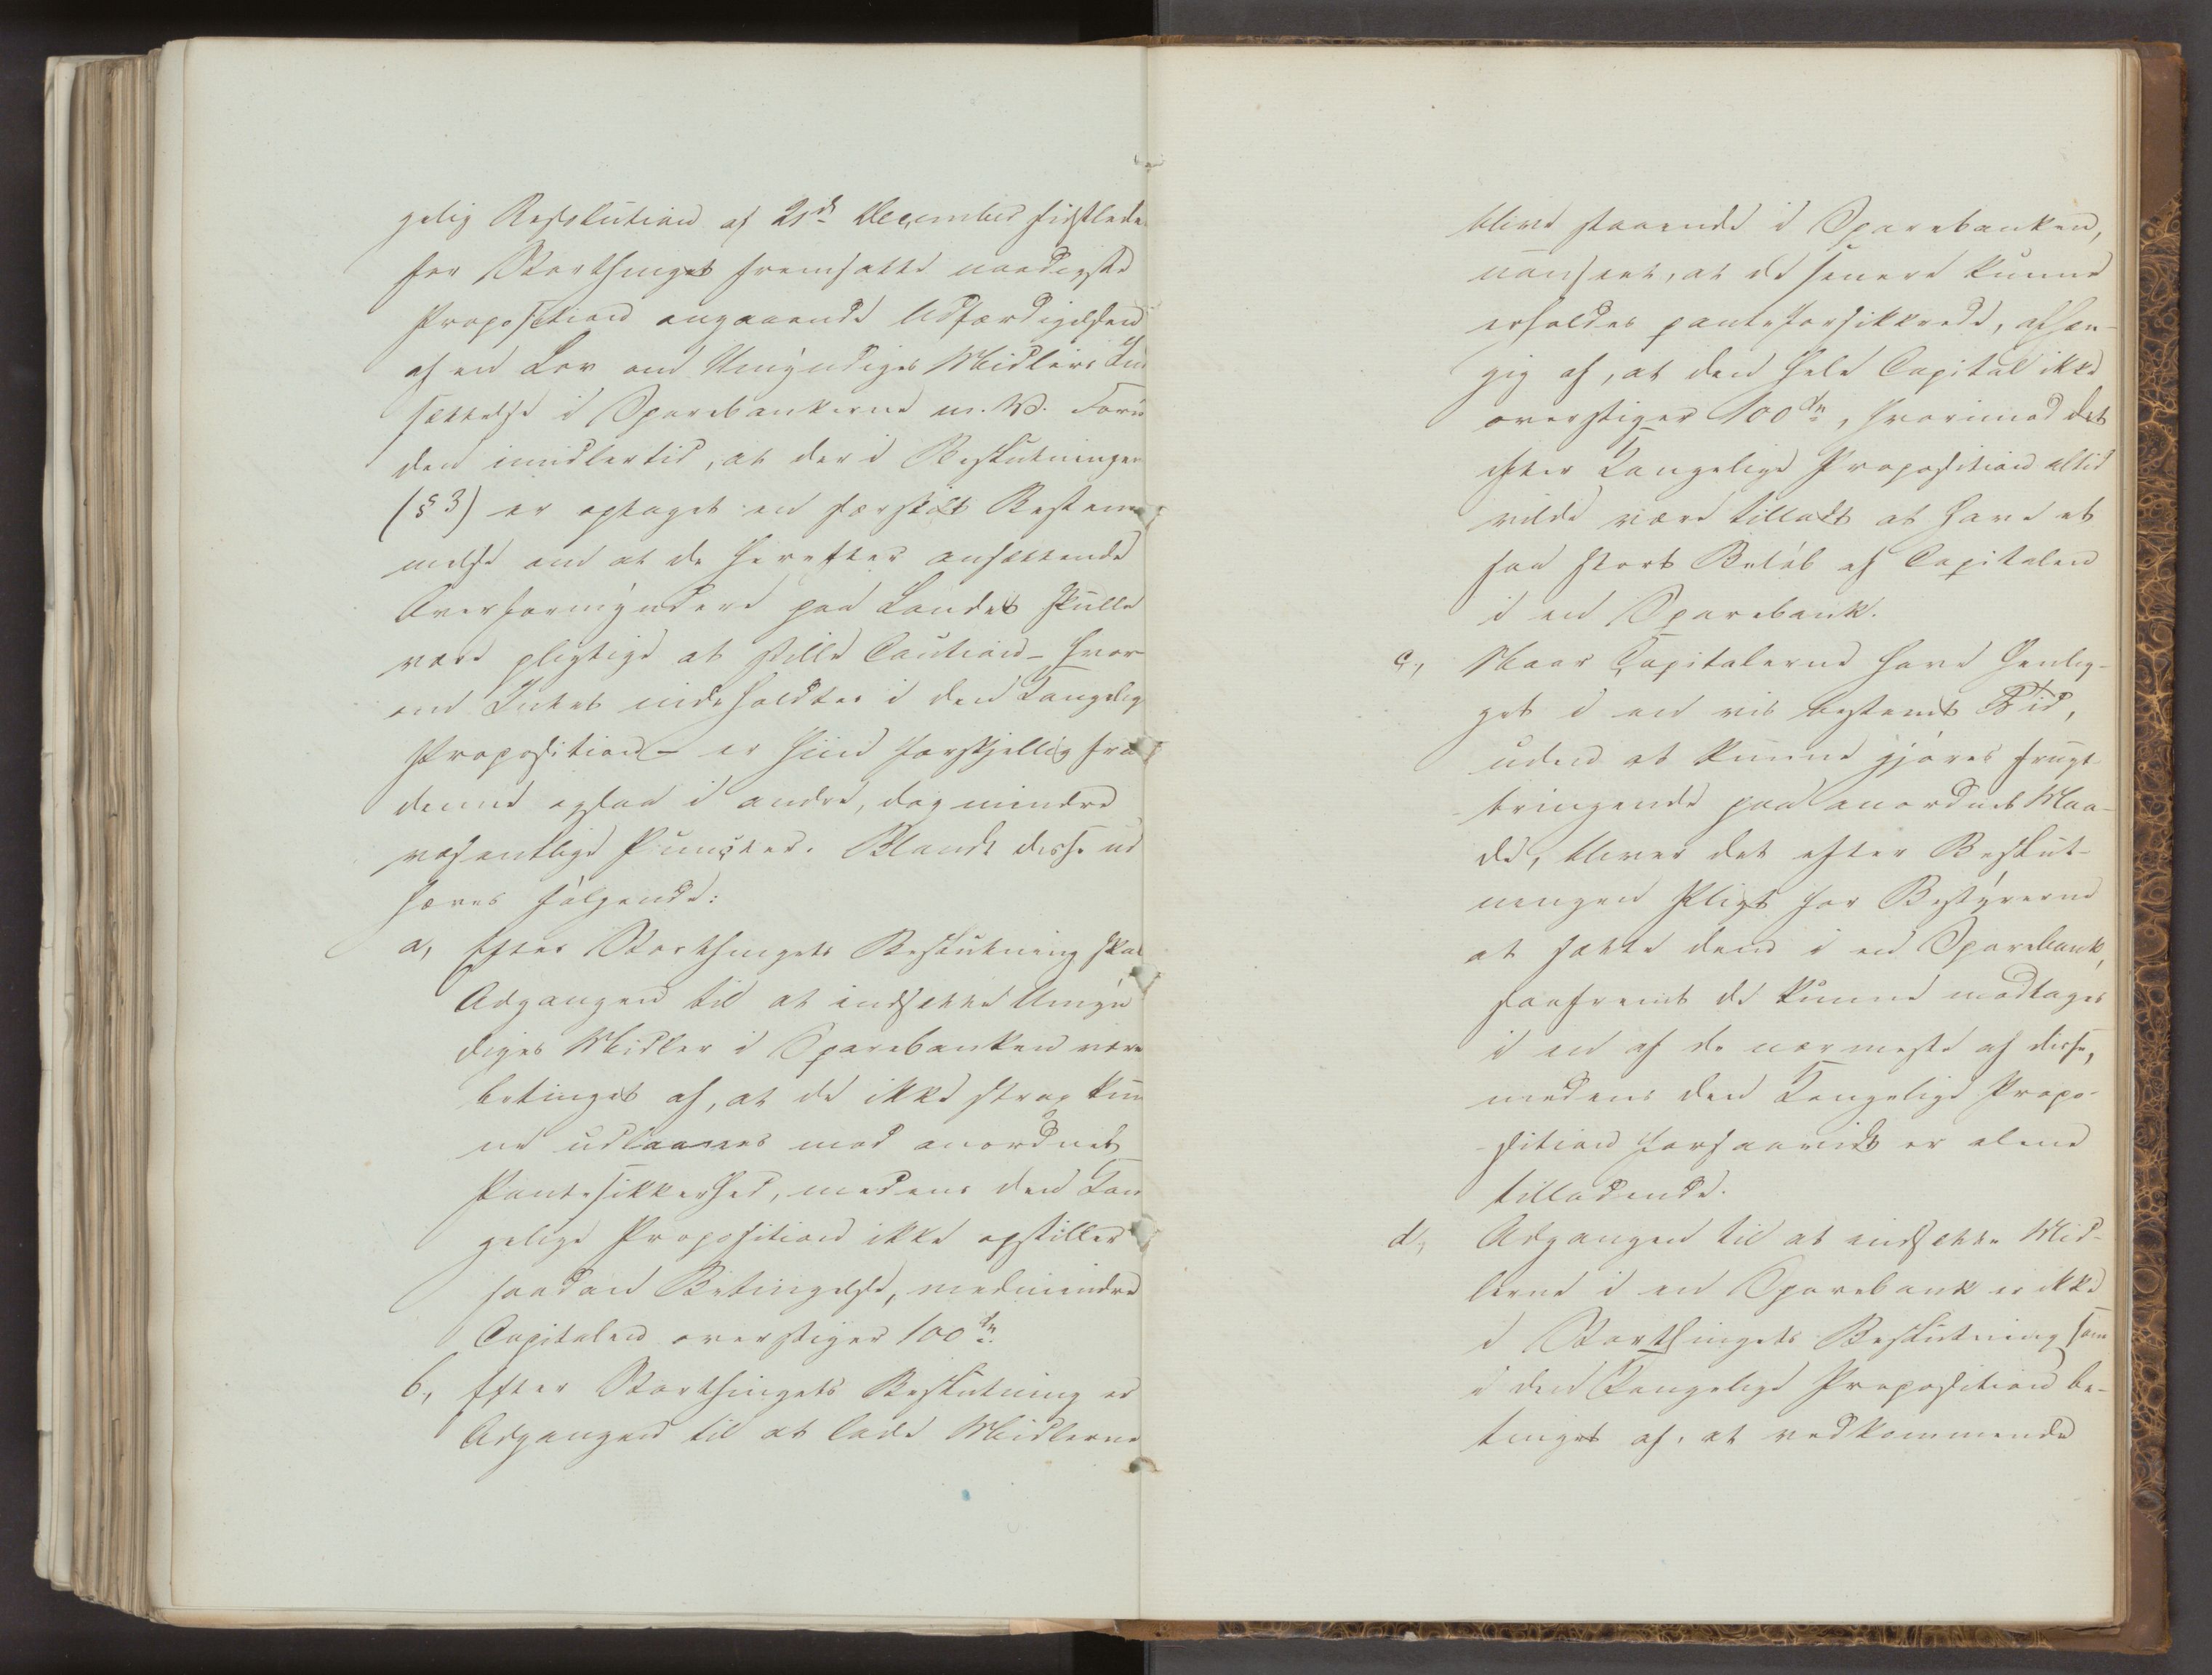 gelig Resolution af 21de December sidstleden
for Storthinget fremsatte naadigste
Proposition angaaende Udfærdigelsen
af en Lov om Umyndiges Midlers Ind
sættelse i Sparebankerne m. V. Foru
den imidlertid, at der i Beslutningen
(§ 3) er optaget en særskilt Bestem
melse om at de herefter ansættende
Overformyndere paa Landet skulle
være pligtige at stille Caution - hvor
om Intet indeholdtes i den Kongelige
Proposition - er hiin forskjellig fra
denne ogsaa i andre, dog mindre
væsentlige Puncter. Blandt disse ud
hæves følgende:
a, Efter Storthingets Beslutning skal
Adgangen til at indsætte Umyn
diges Midler i Sparebanken være
betinget af, at de ikke strax kun
ne udlaanes mod anordnet
Pantesikkerhed, medens den Kon
gelige Proposition ikke opstiller
saadan Betingelse, medmindre
Capitalen overstiger 100 Sp.
b, Efter Storthingets Beslutning er
Adgangen til at lade Midlerne
blive staaende i Sparebanken,
uanseet, at de senere kunne
erholdes panteforsikkrede, afhæn-
gig af, at den hele Capital ikke
overstiger 100 Sp, hvorimod det
efter Kongelige Proposition altid
vilde være tilladt at have et
saa stort Beløb af Capitalen
i en Sparebank.
c, Naar Capitalerne have henlig-
get i en vis bestemt Tid,
uden at kunne gjøres frugt-
bringende paa anordnet Maa-
de, bliver det efter Beslut-
ningen Pligt for Bestyrerne
at sætte dem i en Sparebank,
saafremt de kunne modtages
i en af de nærmeste af disse,
medens den Kongelige Propo-
sition forsaavidt er alene
tilladende.
d, Adgangen til at indsætte Mid-
lerne i en Sparebank er ikke
i Storthingets Beslutning som
i den Kongelige Proposition be-
tinget af, at vedkommende